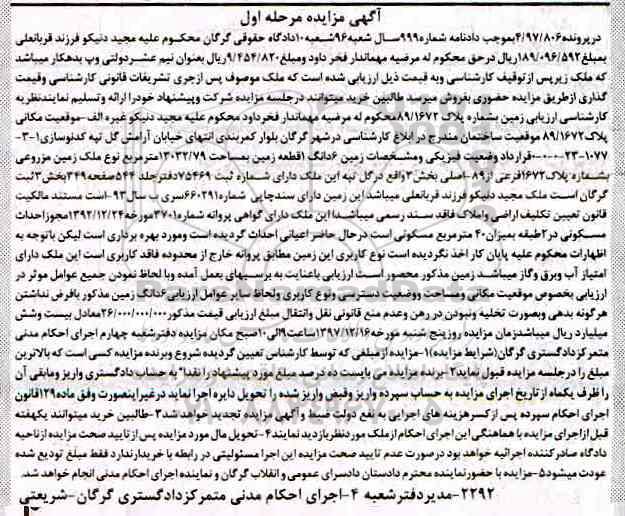 آگهی مزایده مرحله اول
در پرونده ۴/۹۷/۸۰۶ بموجب دادنامه شماره ۹۹۹ سال شعبه ۹۶ شعبه ۱۰ دادگاه حقوقی گرگان محکوم علیه مجید دنیکو فرزند قربانعلی
بمبلغ ۱۸۹/۰۹۶/۵۹۲ ریال در حق محکوم له مرضیه مهماندار فخر داود ومبلغ ۹/۴۵۴/۸۲۰ ریال بعنوان نیم عشر دولتی وب بدهکار میباشد
که ملک زیر پس از توقیف کارشناسی وبه قیمت ذیل ارزیابی شده است که ملک موصوف پس از جری تشریفات قانونی کارشناسی وقیمت
گذاری از طریق مزایده حضوری بفروش میرسد طالبین خرید میتوانند در جلسه مزایده شرکت وپیشنهاد خود را ارائه وتسلیم نمایند نظریه
کارشناسی ارزیابی زمین بشماره پلاک ۸۹/۱۶۷۲ محکوم له مرضیه مهماندار فخر داود محکوم علیه مجید دنیکو غیره الف-موقعیت مکانی
پلاک ۸۹/۱۶۷۲ موقعیت ساختمان مندرج در ابلاغ کارشناسی در شهر گرگان بلوار کمربندی انتهای خیابان آرامش گل تپه کدنوسازی ۱-۳-
۱۰۷۷-۲۳-۰-۰-۰ قرارداد وضعیت فیزیکی ومشخصات زمین ۶ دانگ ۱ قطعه زمین بمساحت ۱۳۰۳۲/۷۹ مترمربع نوع ملک زمین مزروعی
بشماره پلاک ۱۶۷۲ فرعی از ۸۹-اصلی بخش ۳ واقع در گل تپه این ملک دارای شماره ثبت ۷۵۴۶۹ دفتر جلد ۵۴۴ صفحه ۳۴۹ بخش ۳ ثبت
گرگان است ملک مجید دنیکو فرزند قربانعلی میباشد این زمین دارای سند چاپی شماره ۶۶۰۲۹۱ سری ب سال ۹۳-است مستند مالکیت
قانون تعیین تکلیف اراضی واملاک فاقد سند رسمی میباشد این ملک دارای گواهی پروانه شماره ۳۷۰۱ مورخه ۱۳۹۲/۱۲/۲۴ مجوز احداث
مسکونی در ۲ طبقه بمیزان ۴۰ مترمربع مسکونی است در حال حاضر اعیانی احداث گردیده است ومورد بهره برداری است لیکن باتوجه به
اظهارات محکوم علیه پایان کار اخذ نگردیده است نوع کاربری این زمین مطابق پروانه خارج از محدوده فاقد کاربری است این ملک دارای
امتیاز آب وبرق وگاز میباشد زمین مذکور محصور است ارزیابی باعنایت به بررسیهای بعمل آمده وبا لحاظ نمودن جمیع عوامل موثر در
ارزیابی بخصوص موقعیت مکانی ومساحت ووضعیت دسترسی ونوع کاربری ولحاظ سایر عوامل ارزیابی ۶ دانگ زمین مذکور بافرض نداشتن
هر گونه بدهی وبصورت تخلیه ونبودن در رهن وعدم منع قانونی نقل وانتقال مبلغ ارزیابی قیمت مذکور ۲۶/۰۰۰/۰۰۰/۰۰۰ معادل بیست وشش
میلیارد ریال میباشد زمان مزایده روز پنج شنبه مورخه ۱۳۹۷/۱۲/۱۶ ساعت ۹ الی ۱۰ صبح مکان مزایده دفتر شعبه چهارم اجرای احکام مدنی
متمرکز دادگستری گرگان (شرایط مزایده) ۱-مزایده از مبلغی که توسط کارشناس تعیین گردیده شروع وبرنده مزایده کسی است که بالاترین
مبلغ را در جلسه مزایده قبول نماید ۲-برنده مزایده می بایست ده درصد مبلغ مورد پیشنهاد را نقدا" به حساب دادگستری واریز ومابقی آن
را ظرف یکماه از تاریخ اجرای مزایده به حساب سپرده واریز وقبض واریز شده را تحویل دایره اجرا نماید در غیر اینصورت وفق ماده ۱۲۹ قانون
اجرای احکام سپرده پس از کسر هزینه های اجرایی به نفع دولت ضبط و آگهی مزایده تجدید خواهد شد ۳-طالبین خرید میتوانند یکهفته
قبل از اجرای مزایده با هماهنگی این اجرای احکام از ملک مورد نظر بازدید نمایند ۴-تحویل مال مورد مزایده پس از تایید صحت مزایده از ناحیه
دادگاه صادر کننده اجرائیه خواهد بود در صورت عدم تایید صحت مزایده این اجرا مسئولیتی در رابطه با خریدار ندارد فقط مبلغ تودیع شده
عودت میشود ۵-مزایده با حضور نماینده محترم دادستان دادسرای عمومی و انقلاب گرگان و نماینده اجرای احکام مدنی انجام خواهد شد.
۲۲۹۲-مدیر دفتر شعبه ۴-اجرای احکام مدنی متمرکز دادگستری گرگان-شریعتی